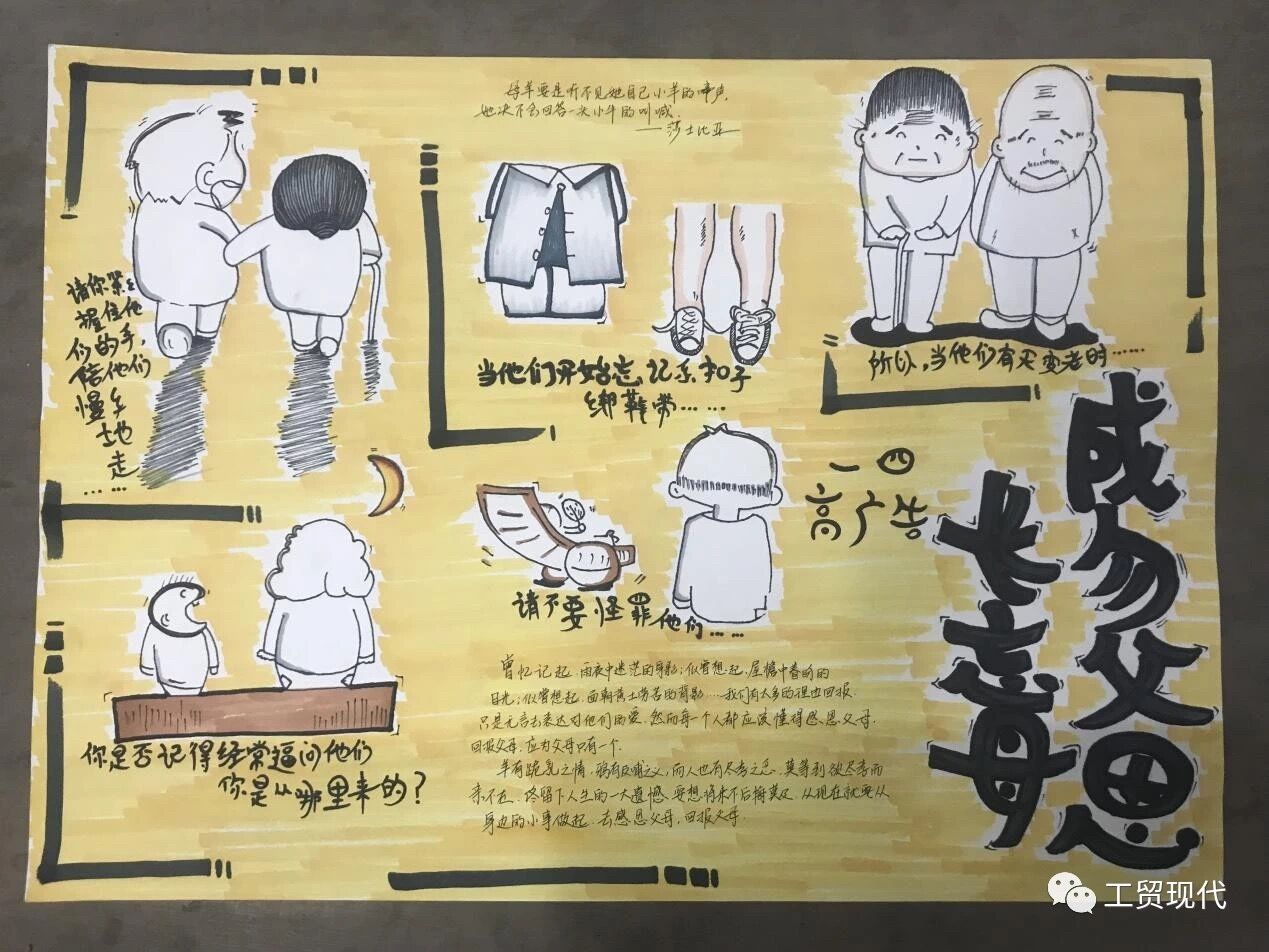 母羊要是听不见她自己小羊的啼声,
她决不会回答一头小牛的叫喊.
——莎士比亚
请你紧紧
握住他
们的手,
陪他们
慢乡
地
走
……
当他们开始忘记系扣子
绑鞋带……
所以,当他们有天变老时……
成长
勿忘
父母
恩
一四
高广告
请不要怪罪他们……
你是否记得经常逼问他们
你是从哪里来的?
曾忆记起,雨夜中迷茫的身影;似曾想起,屋檐中昏暗的
目光;似曾想起,面朝黄土劳苦的背影……我们有太多的理由回报,
只是无言去表达对他们的爱.然而每一个人都应该懂得感恩父母,
回报父母,应为父母只有一个.
羊有跪乳之情,鸦有反哺之义,而人也有尽孝之心.莫等到欲尽孝而
亲不在,终留下人生的一大遗憾,要想将来不后悔莫及,从现在就要从
身边的小事做起,去感恩父母,回报父母.
工贸现代